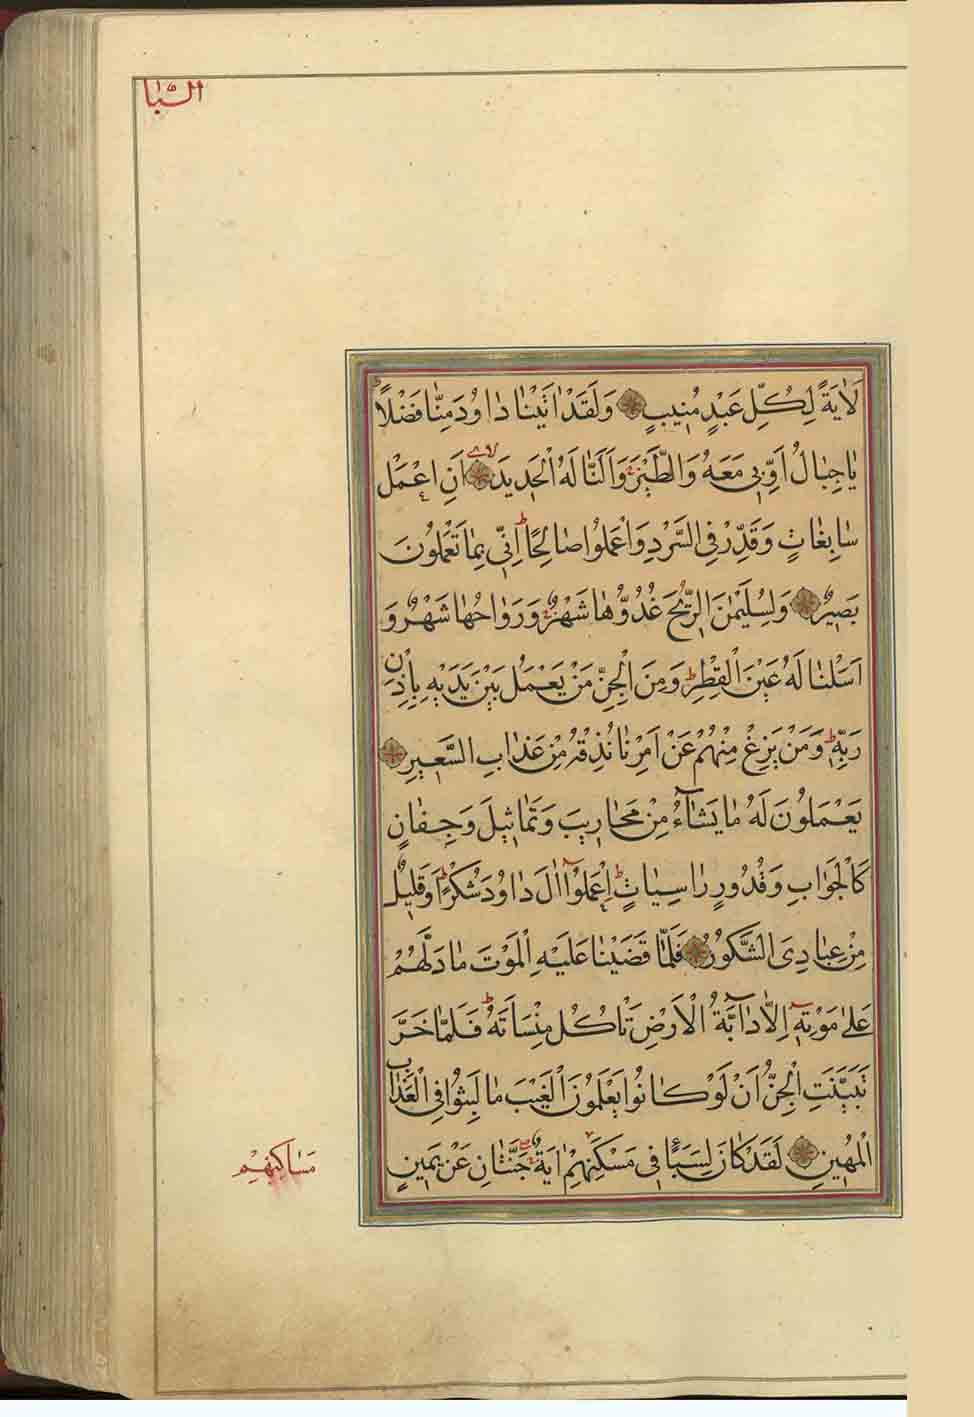 السبا
لَاٰيَةً لِكُلِّ عَبْدٍ مُنٖيبٍ وَلَقَدْ اٰتَيْنٰا دٰاوُدَ مِنّٰا فَضْلًا
يٰا جِبٰالُ اَوِّبٖي مَعَهُ وَالطَّيْرَ وَاَلَنّٰا لَهُ الْحَدٖيدَ اَنِ اعْمَلْ
سٰابِغٰاتٍ وَقَدِّرْ فِي السَّرْدِ وَاعْمَلُوا صٰالِحًا اِنّٖي بِمٰا تَعْمَلُونَ
بَصٖيرٌ وَلِسُلَيْمٰنَ الرّٖيحَ غُدُوُّهٰا شَهْرٌ وَرَوٰاحُهٰا شَهْرٌ وَ
اَسَلْنٰا لَهُ عَيْنَ الْقِطْرِ وَمِنَ الْجِنِّ مَنْ يَعْمَلُ بَيْنَ يَدَيْهِ بِاِذْنِ
رَبِّهٖ وَمَنْ يَزِغْ مِنْهُمْ عَنْ اَمْرِنٰا نُذِقْهُ مِنْ عَذٰابِ السَّعٖيرِ
يَعْمَلُونَ لَهُ مٰا يَشٰٓاءُ مِنْ مَحٰارٖيبَ وَتَمٰاثٖيلَ وَجِفٰانٍ
كَالْجَوٰابِ وَقُدُورٍ رٰاسِيٰاتٍ اِعْمَلُوٓا اٰلَ دٰاوُدَ شُكْرًا وَقَلٖيلٌ
مِنْ عِبٰادِيَ الشَّكُورُ فَلَمّٰا قَضَيْنٰا عَلَيْهِ الْمَوْتَ مٰا دَلَّهُمْ
عَلىٰ مَوْتِهٖٓ اِلّٰا دٰٓابَّةُ الْاَرْضِ تَاْكُلُ مِنْسَاَتَهُ فَلَمّٰا خَرَّ
تَبَيَّنَتِ الْجِنُّ اَنْ لَوْ كٰانُوا يَعْلَمُونَ الْغَيْبَ مٰا لَبِثُوا فِي الْعَذٰابِ
الْمُهٖينِ لَقَدْ كٰانَ لِسَبَاٍ فٖي مَسْكَنِهِمْ اٰيَةٌ جَنَّتٰانِ عَنْ يَمٖينٍ
مَسٰاكِنِهِمْ